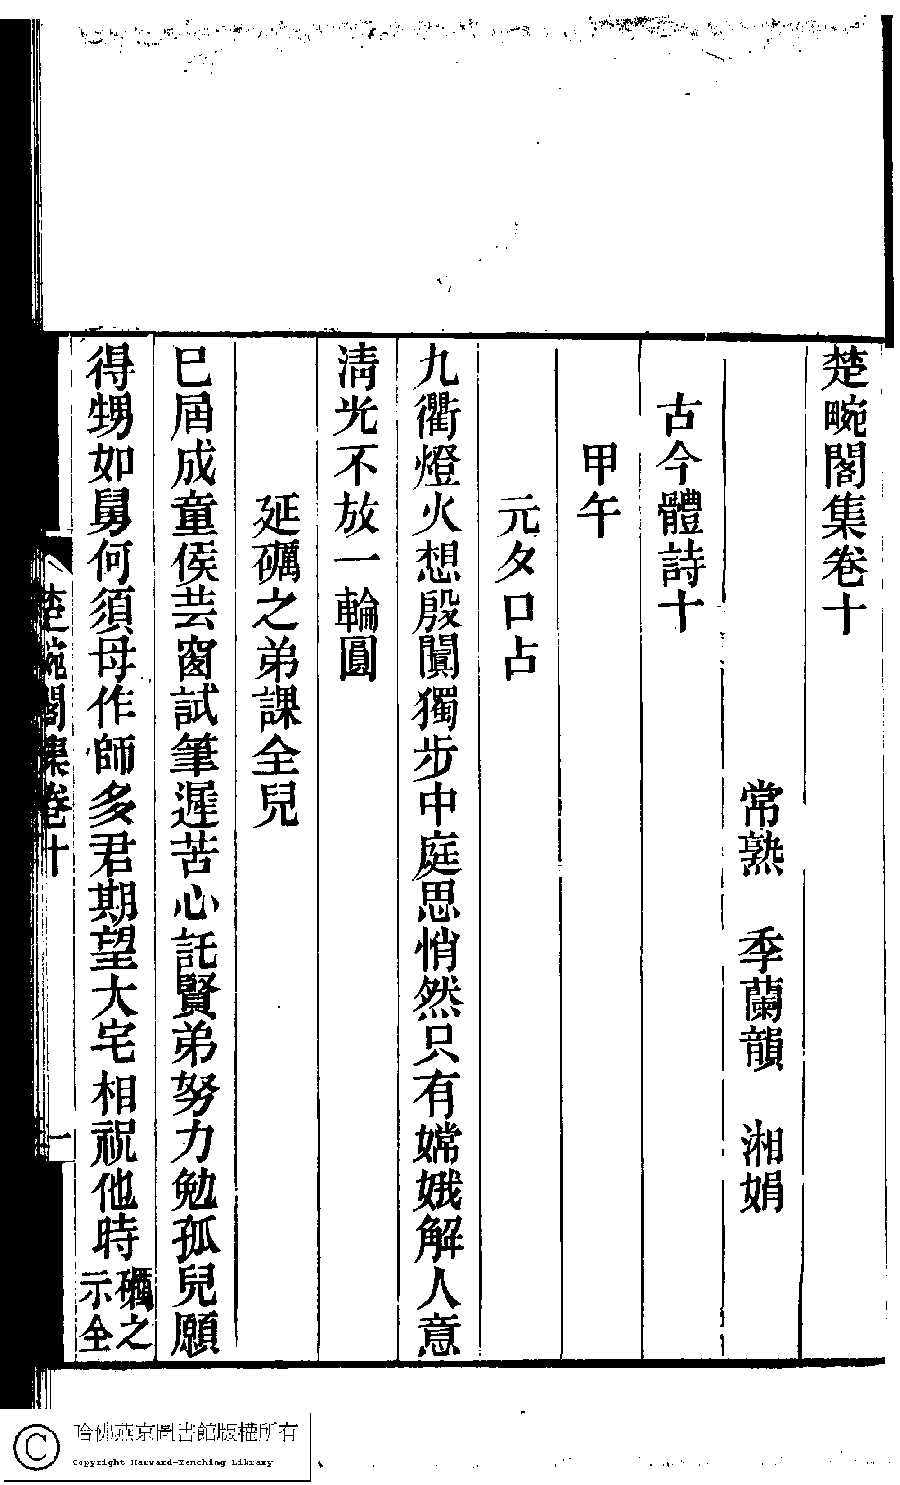 楚畹閣集卷十
常熟　季蘭韻　湘娟
古今體詩十
甲午
元夕口占
九衢燈火想殷闐獨步中庭思悄然只有嫦娥解人意
清光不放一輪圓
延礪之弟課全兒
已屆成童侯芸窗試筆遲苦心託賢弟努力勉孤兒願
得甥如舅何須母作師多君期望大宅相祝他時礪之
示全
楚畹閣集卷十
一
哈佛燕京圖書館版權所有
Copyright Harvard-Yenching Library